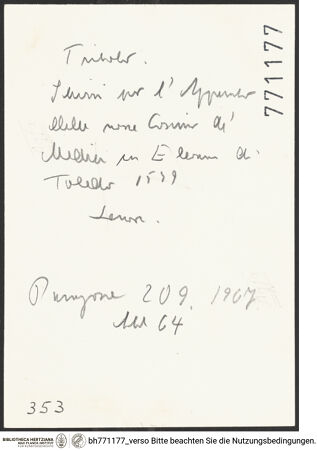 Tribolo.
771177
per l'Apparato
delle nozze Cosimo de'
Medici con Eleonora di
Toledo 1539
Paragone 209, 1967
Abb 64
353
BIBLIOTHECA HERTZIANA
MAX-PLANCK-INSTITUT
FÜR KUNSTGESCHICHTE
bh771177_verso Bitte beachten Sie die Nutzungsbedingungen.